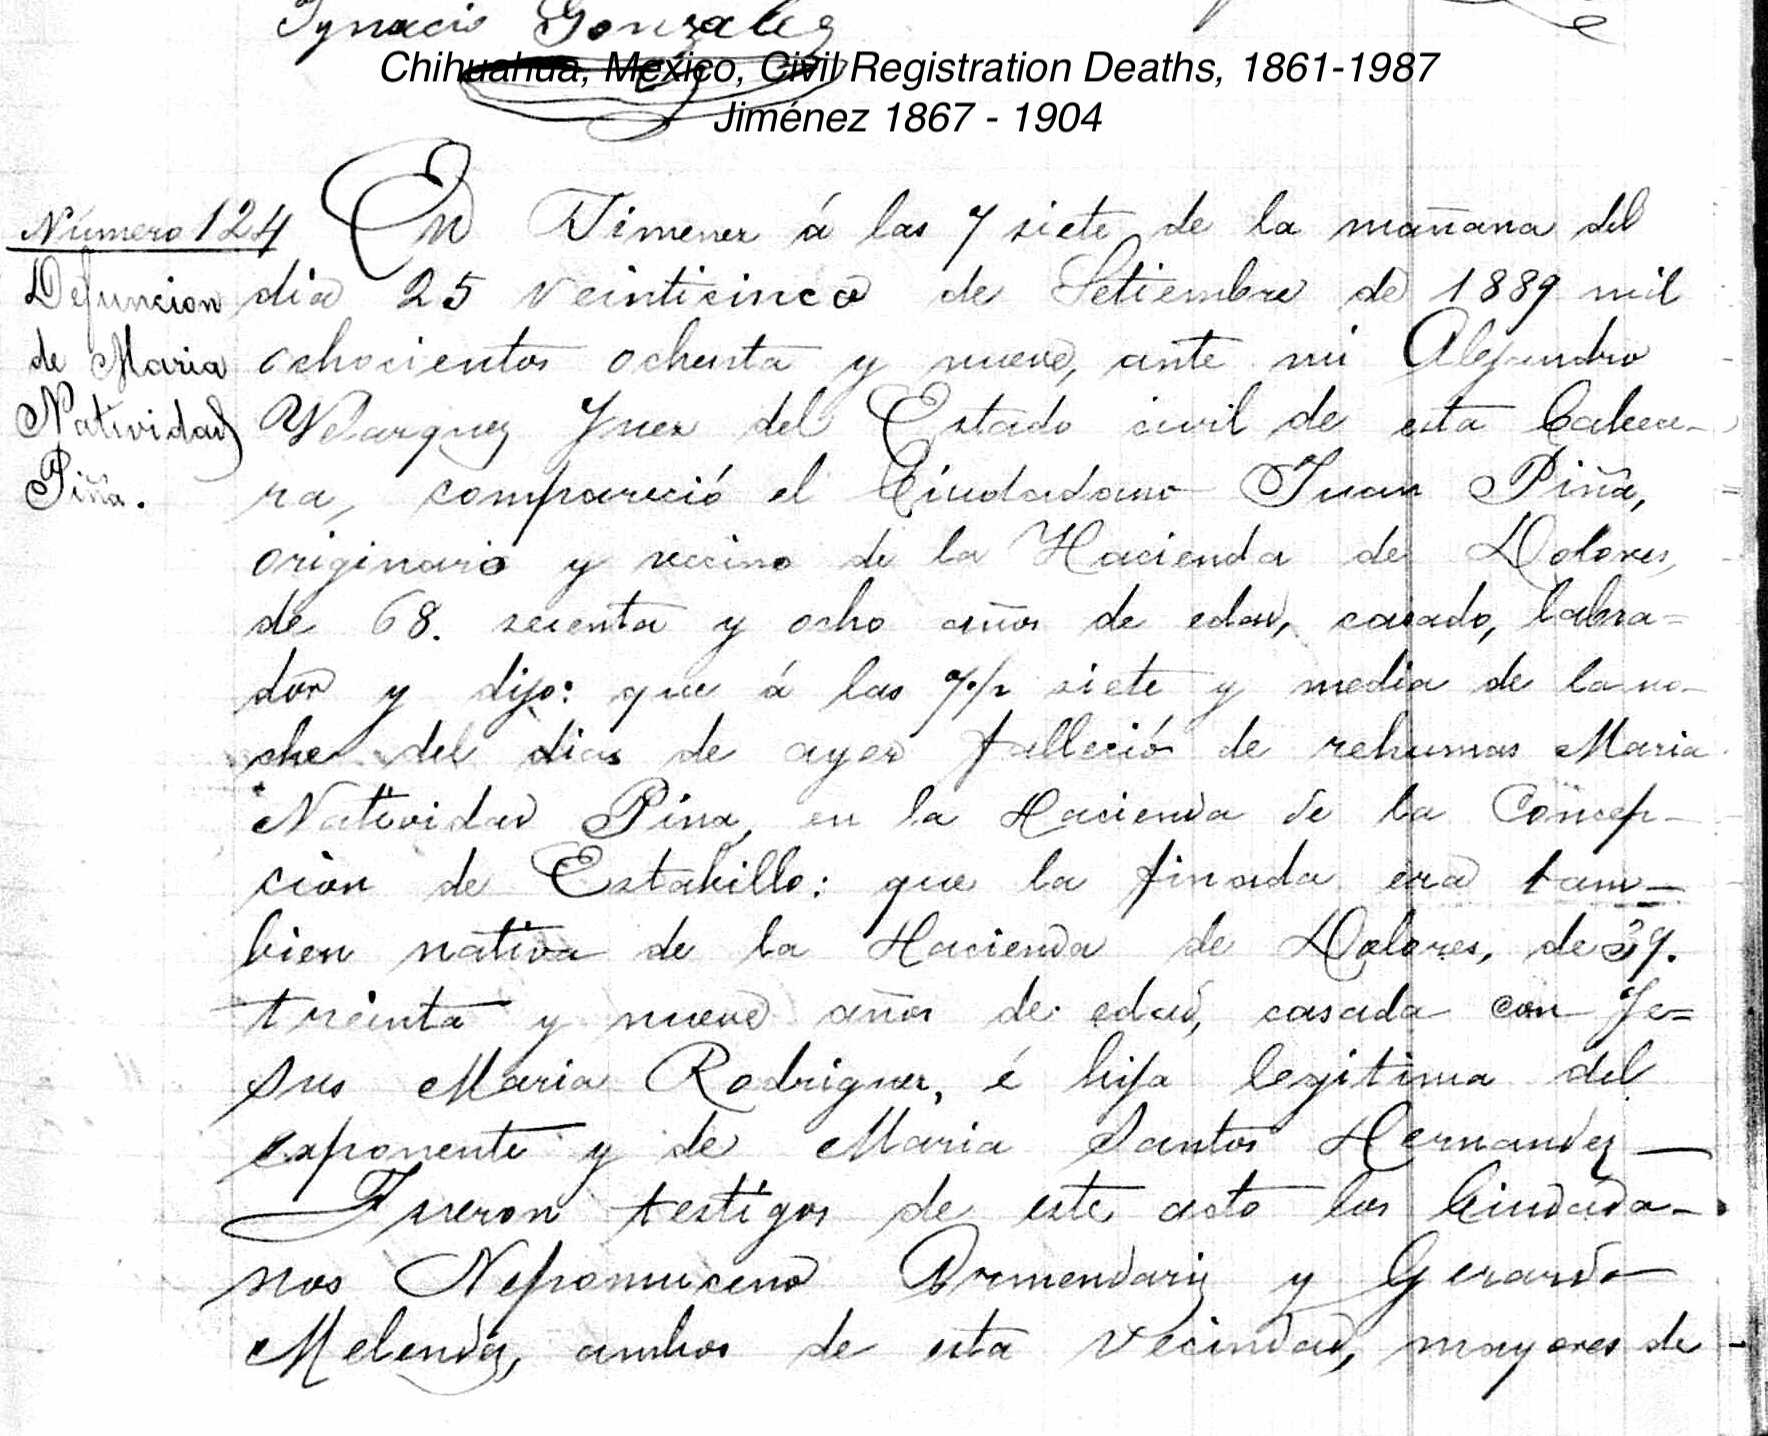 Ygnacio Gonzalez
Chihuahua, Mexico, Civil Registration Deaths, 1861-1987
Jiménez 1867 - 1904
Número 124
Defuncion
de Maria
Natividad
Piña.
En Jimenez á las 7 siete de la mañana del
dia 25 veinticinco de Setiembre de 1889 mil
ochocientos ochenta y nueve, ante mi Alejandro
Velazquez Juez del Estado civil de esta Cabece-
ra, compareció el Ciudadano Juan Piña,
originario y vecino de la Hacienda de Dolores,
de 68. sesenta y ocho años de edad, casado, labra=
dor y dijo: que á las 7½ siete y media de la no-
che del dia de ayer falleció de rehumas Maria
Natividad Pina, en la Hacienda de la Concep-
cion de Estabillo: que la finada era tam-
bien nativa de la Hacienda de Dolores, de 39.
treinta y nueve años de edad, casada con Je=
sus Maria Rodriguez, é hija legitima del
exponente y de Maria Santos Hernandez —
Fueron testigos de este acto los Ciudada-
nos Nepomuceno Armendariz y Gerardo
Melendez, ambos de esta vecindad, mayores de -